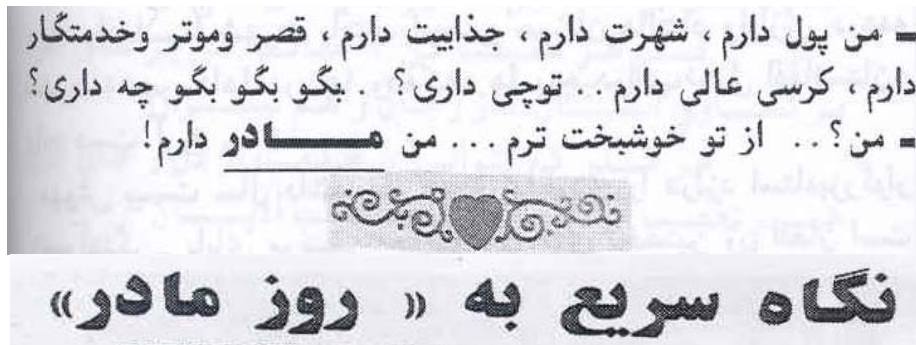 ـ من پول دارم ، شهرت دارم ، جذابیت دارم ، قصر وموتر وخدمتگار
دارم ، کرسی عالی دارم . . توچی داری؟ . بگو بگو بگو چه داری؟
ـ من؟ . . از تو خوشبخت ترم . . . من مــــادر دارم!
نگاه سریع به « روز مادر»